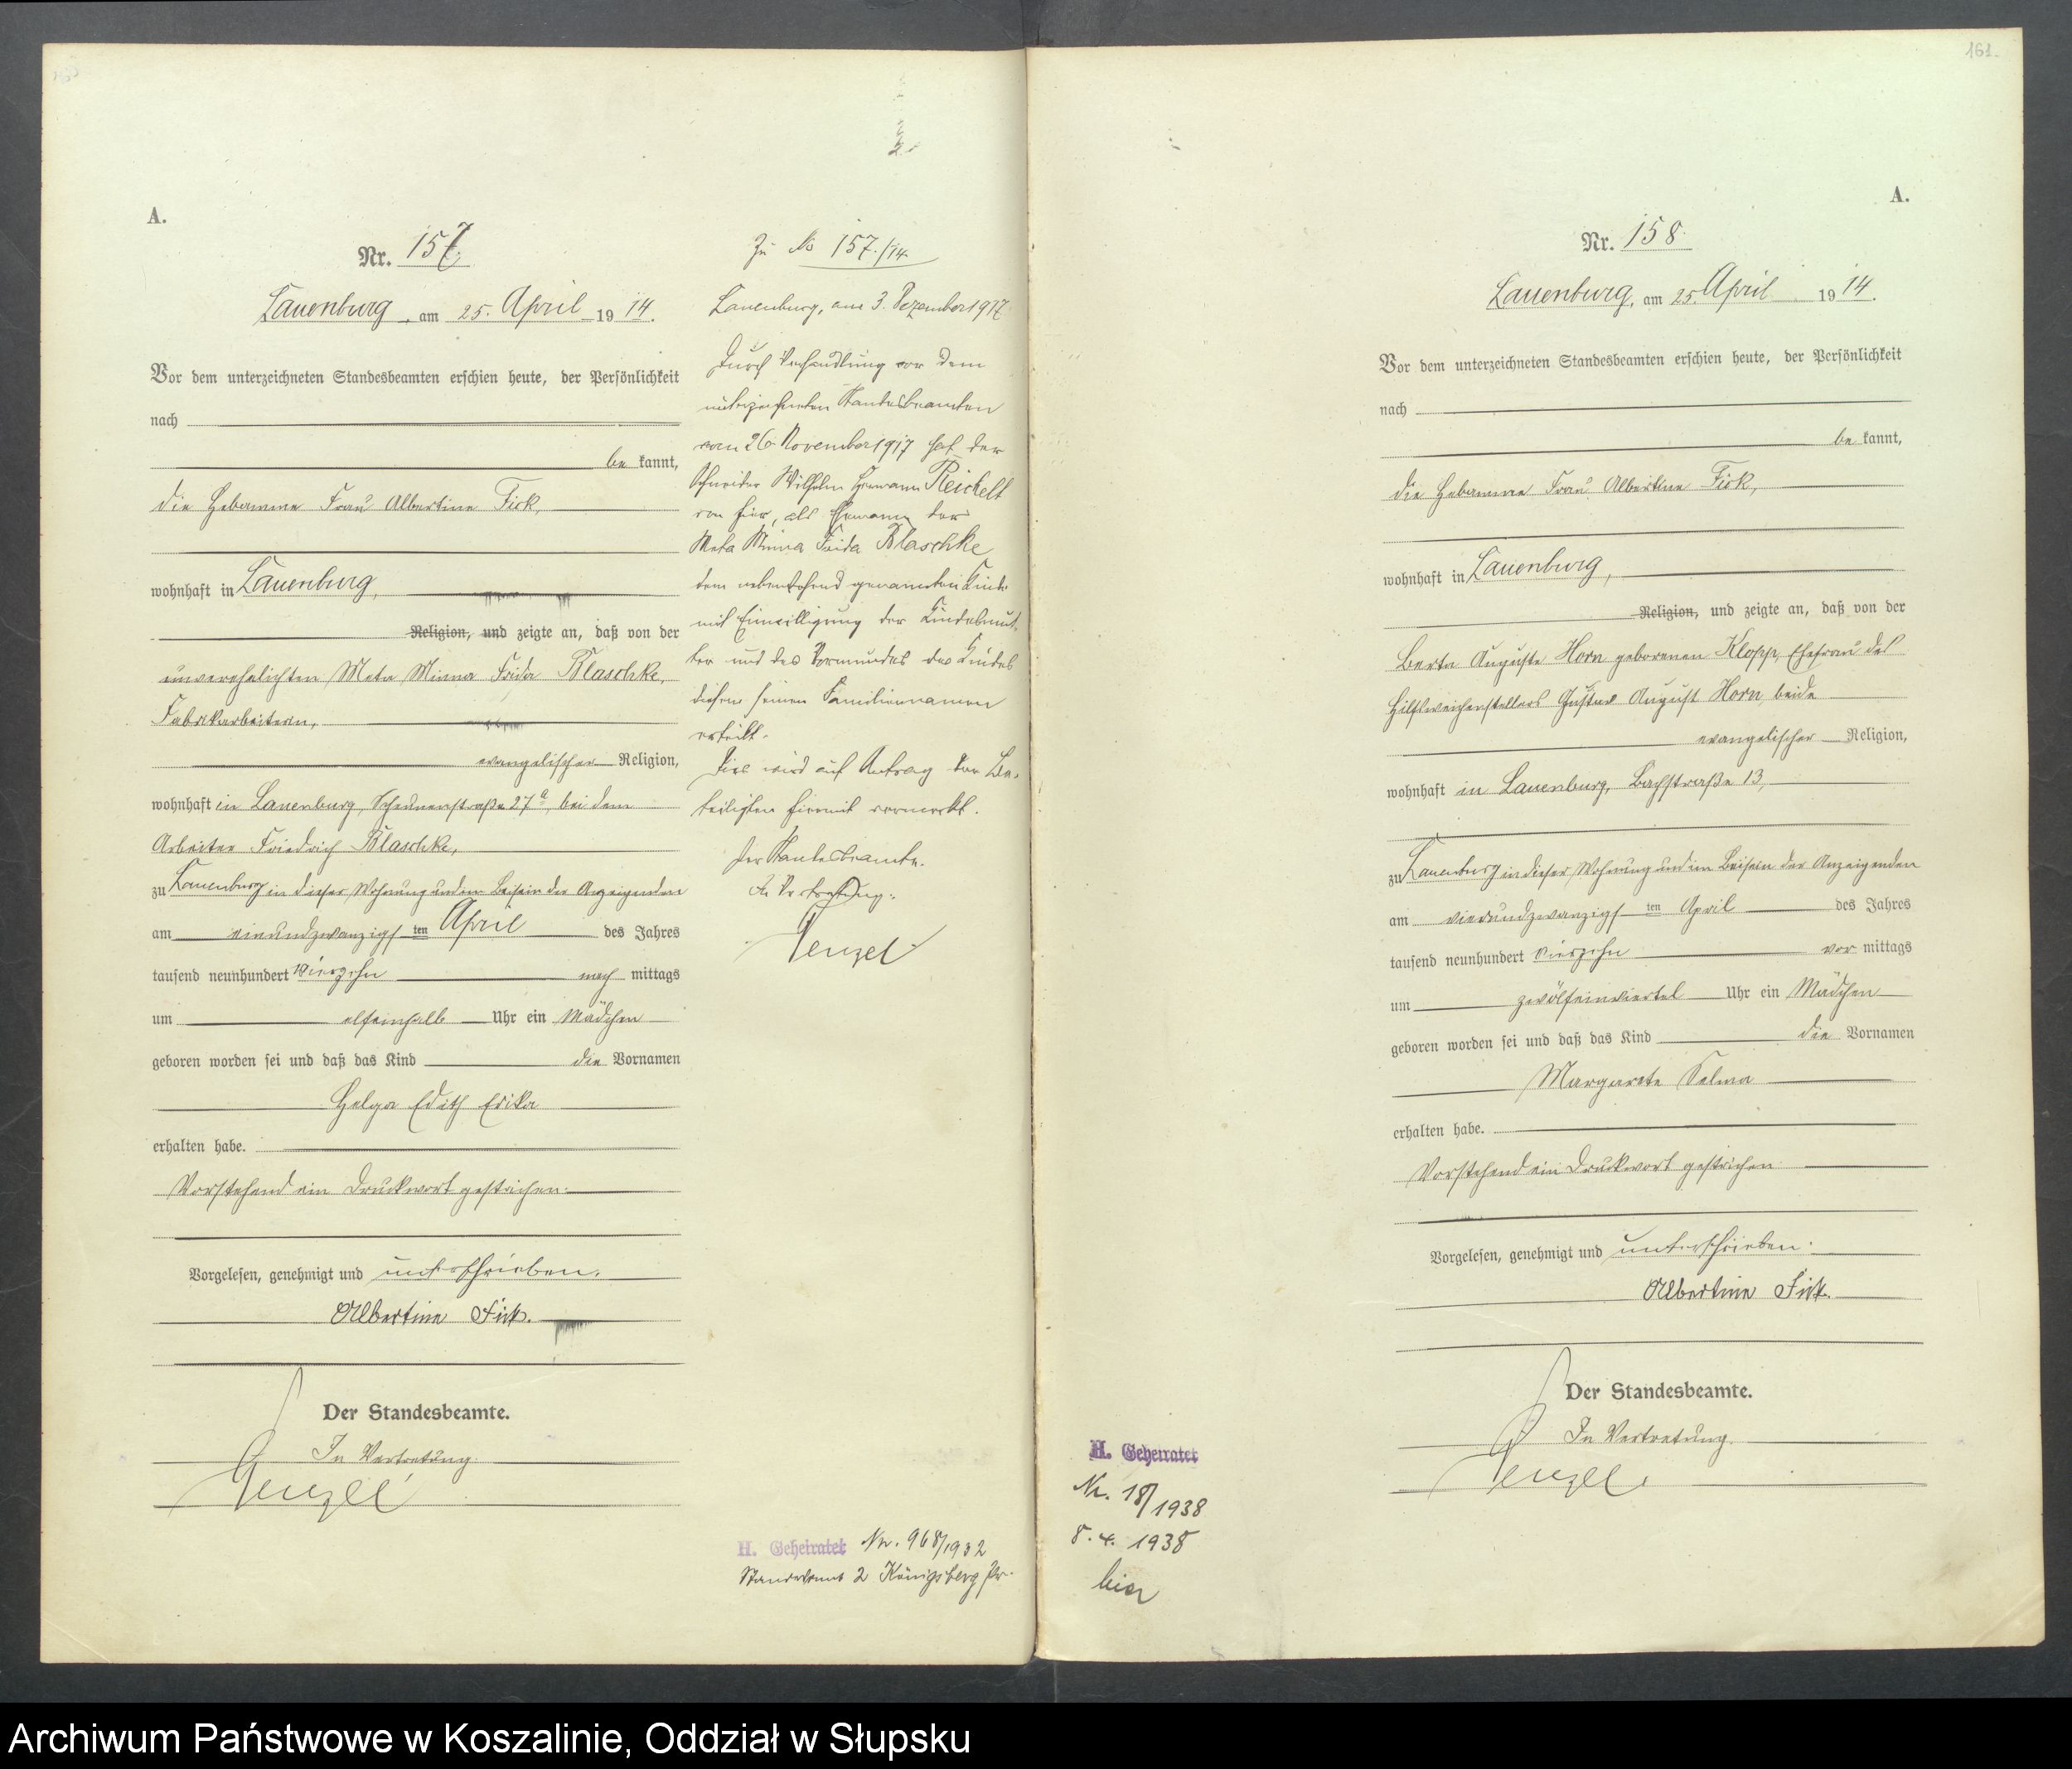 A.
Nr. 157.
Lauenburg, am 25. April 1914.
Vor dem unterzeichneten Standesbeamten erschien heute, der Persönlichkeit
nach
be kannt,
die Hebamme Frau Albertine Fick,
wohnhaft in Lauenburg,
Religion, und zeigte an, daß von der
unverehelichten Meta Minna Frida Blaschke,
Fabrikarbeiterin,
evangelischer Religion,
wohnhaft in Lauenburg, Scheunenstraße 27a, bei dem
Arbeiter Friedrich Blaschke,
zu Lauenburg in dieser Wohnung und im Beisein der Anzeigenden
am einundzwanzigsten April des Jahres
tausend neunhundert vierzehn nach mittags
um elfeinhalb Uhr ein Mädchen
geboren worden sei und daß das Kind die Vornamen
Helga Edith Erika
erhalten habe.
Vorstehend ein Druckwort gestrichen.
Vorgelesen, genehmigt und unterschrieben.
Albertine Fick.
Der Standesbeamte.
In Vertretung.
Zu No 157./14.
Lauenburg, am 3. Dezember 1917
Durch Verhandlung vor dem
unterzeichneten Standesbeamten
vom 26. November 1917 hat der
Schneider Wilhelm Hermann Reichelt
von hier, als Ehemann der
Meta Minna Frida Blaschke,
dem nebenstehend genannten Kinde
mit Einwilligung der Kindesmut-
ter und des Vormundes des Kindes
diesem seinen Familiennamen
erteilt.
Dies wird auf Antrag der Be-
teiligten hiermit vermerkt.
Der Standesbeamte.
In Vertretung:
H. Geheiratet Nr. 968/1932
Standesamt 2 Königsberg Pr.
161.
A.
Nr. 158.
Lauenburg, am 25. April 1914.
Vor dem unterzeichneten Standesbeamten erschien heute, der Persönlichkeit
nach
be kannt,
die Hebamme Frau Albertine Fick,
wohnhaft in Lauenburg,
Religion, und zeigte an, daß von der
Berta Auguste Horn geborenen Klopp, Ehefrau des
Hilfsweichenstellers Gustav August Horn, beide
evangelischer Religion,
wohnhaft in Lauenburg, Bachstraße 13,
zu Lauenburg in dieser Wohnung und im Beisein der Anzeigenden
am vierundzwanzigsten April des Jahres
tausend neunhundert vierzehn vor mittags
um zwölfeinviertel Uhr ein Mädchen
geboren worden sei und daß das Kind die Vornamen
Margarete Selma
erhalten habe.
Vorstehend ein Druckwort gestrichen.
Vorgelesen, genehmigt und unterschrieben.
Albertine Fick.
Der Standesbeamte.
In Vertretung.
H. Geheiratet
Nr. 18/1938
8. 4. 1938
hier
Archiwum Państwowe w Koszalinie, Oddział w Słupsku